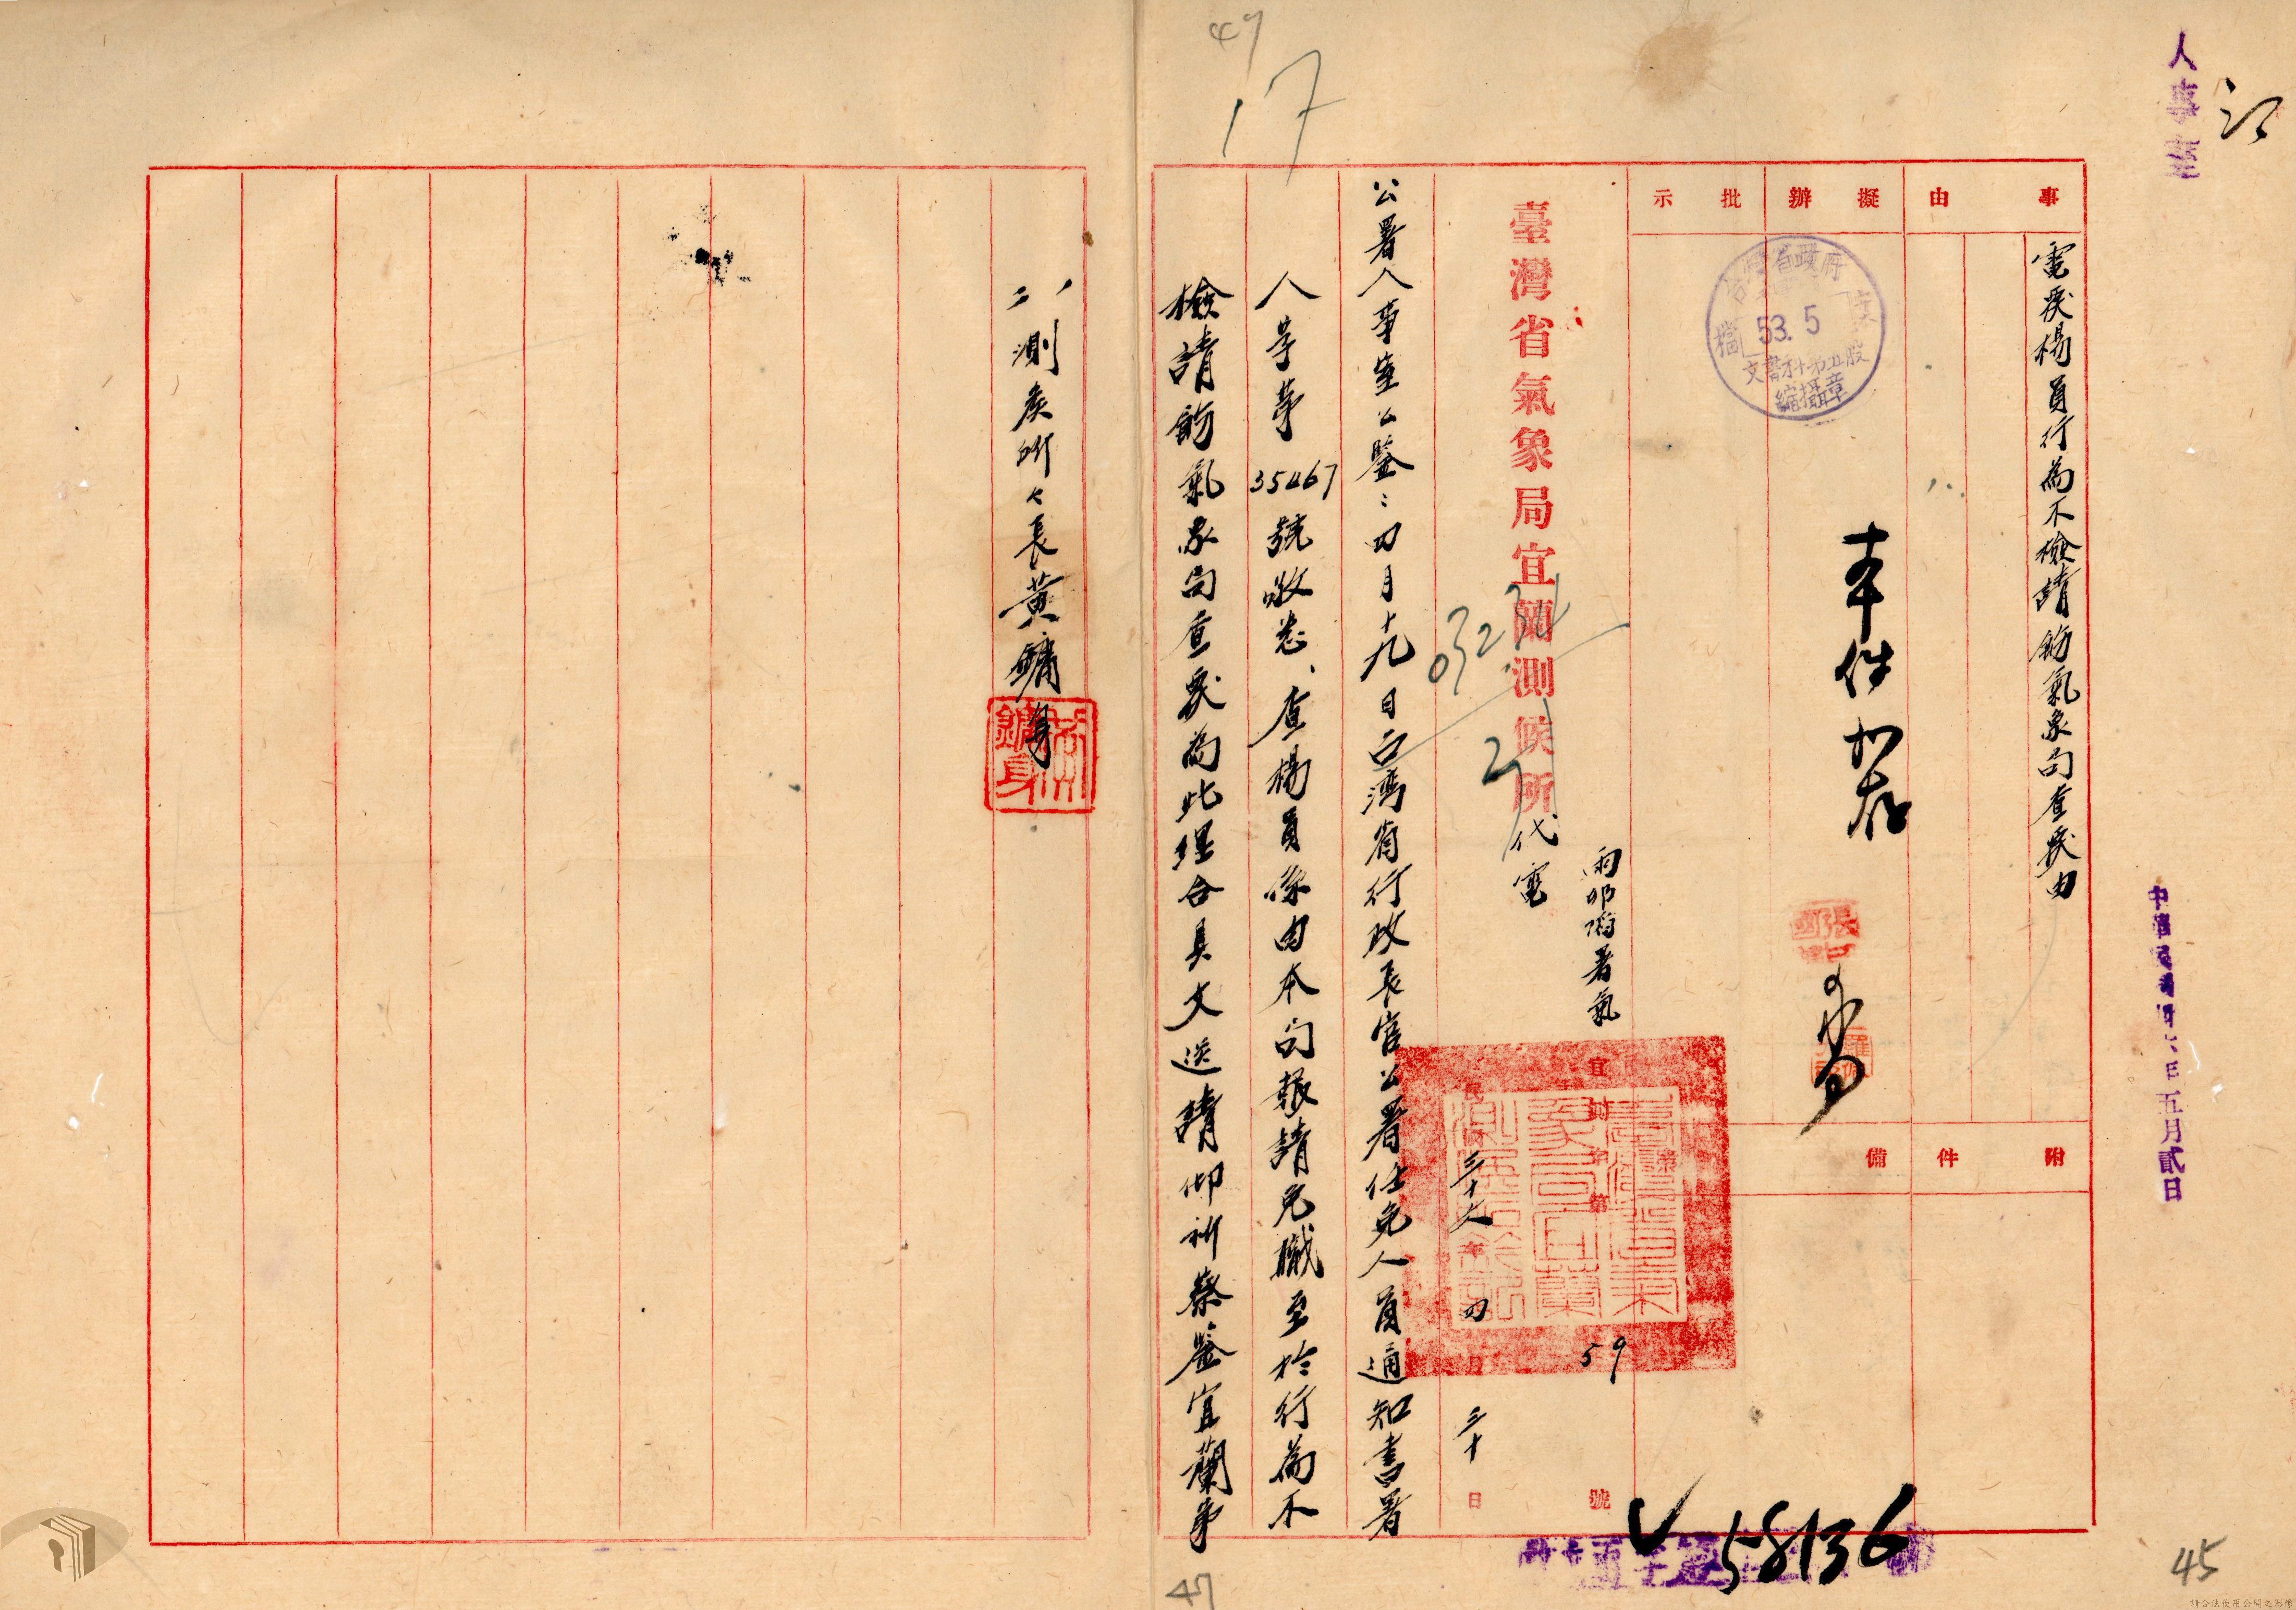 人事室
事由
電戾楊員行為不檢請飭氣象局查戾由
擬辦
本件擬存
批示
附件
備
中華民國卅六年五月貳日
台灣省政府
檔
53. 5
文書科第五股
縮攝章
臺灣省氣象局宜蘭測候所代電
民
三十六年四月三十日
59
號
公署人事室公鑒：四月十九日台灣省行政長官公署任免人員通知書署
人字第35467號敬悉、查楊員係由本局報請免職至於行為不
檢請飭氣象局查戾為此理合具文送請仰祈察鑒宜蘭
測候所々長黃鏞身
03234
58136
17
49
47
45
請合法使用公開之影像